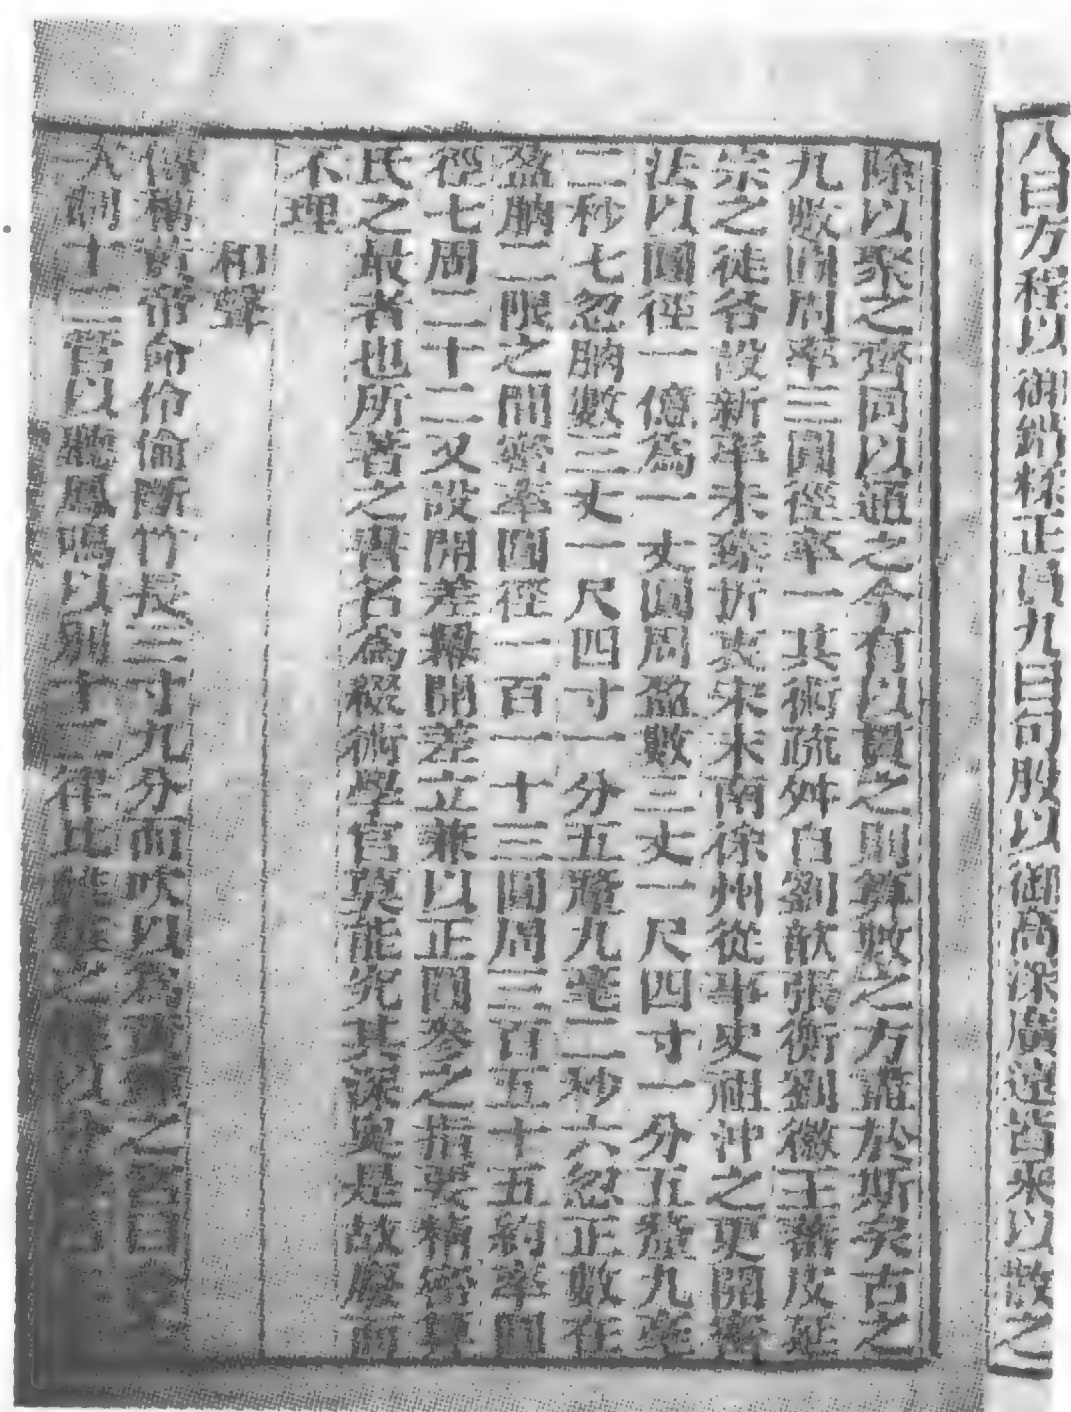 八曰方程以御錯糅正負九曰句股以御高深廣遠皆乘以散之
除以聚之齊同以通之今有以貫之則筭數之方盡於斯矣古之
九數圓周率三圓徑率一其術疏舛自劉歆張衡劉徽王蕃皮延
宗之徒各設新率未臻折衷宋末南徐州從事史祖沖之更開密
法以圓徑一億為一丈圓周盈數三丈一尺四寸一分五釐九毫
二秒七忽朒數三丈一尺四寸一分五釐九毫二秒六忽正數在
盈朒二限之間密率圓徑一百一十三圓周三百五十五約率圓
徑七周二十二又設開差冪開差立兼以正圓參之指要精密筭
氏之最者也所著之書名為綴術學官莫能究其深奧是故廢而
不理
和聲
傳稱黃帝命伶倫斷竹長三寸九分而吹以為黃鍾之宮曰含
次制十二管以聽鳳鳴以別十二律比雌雄之